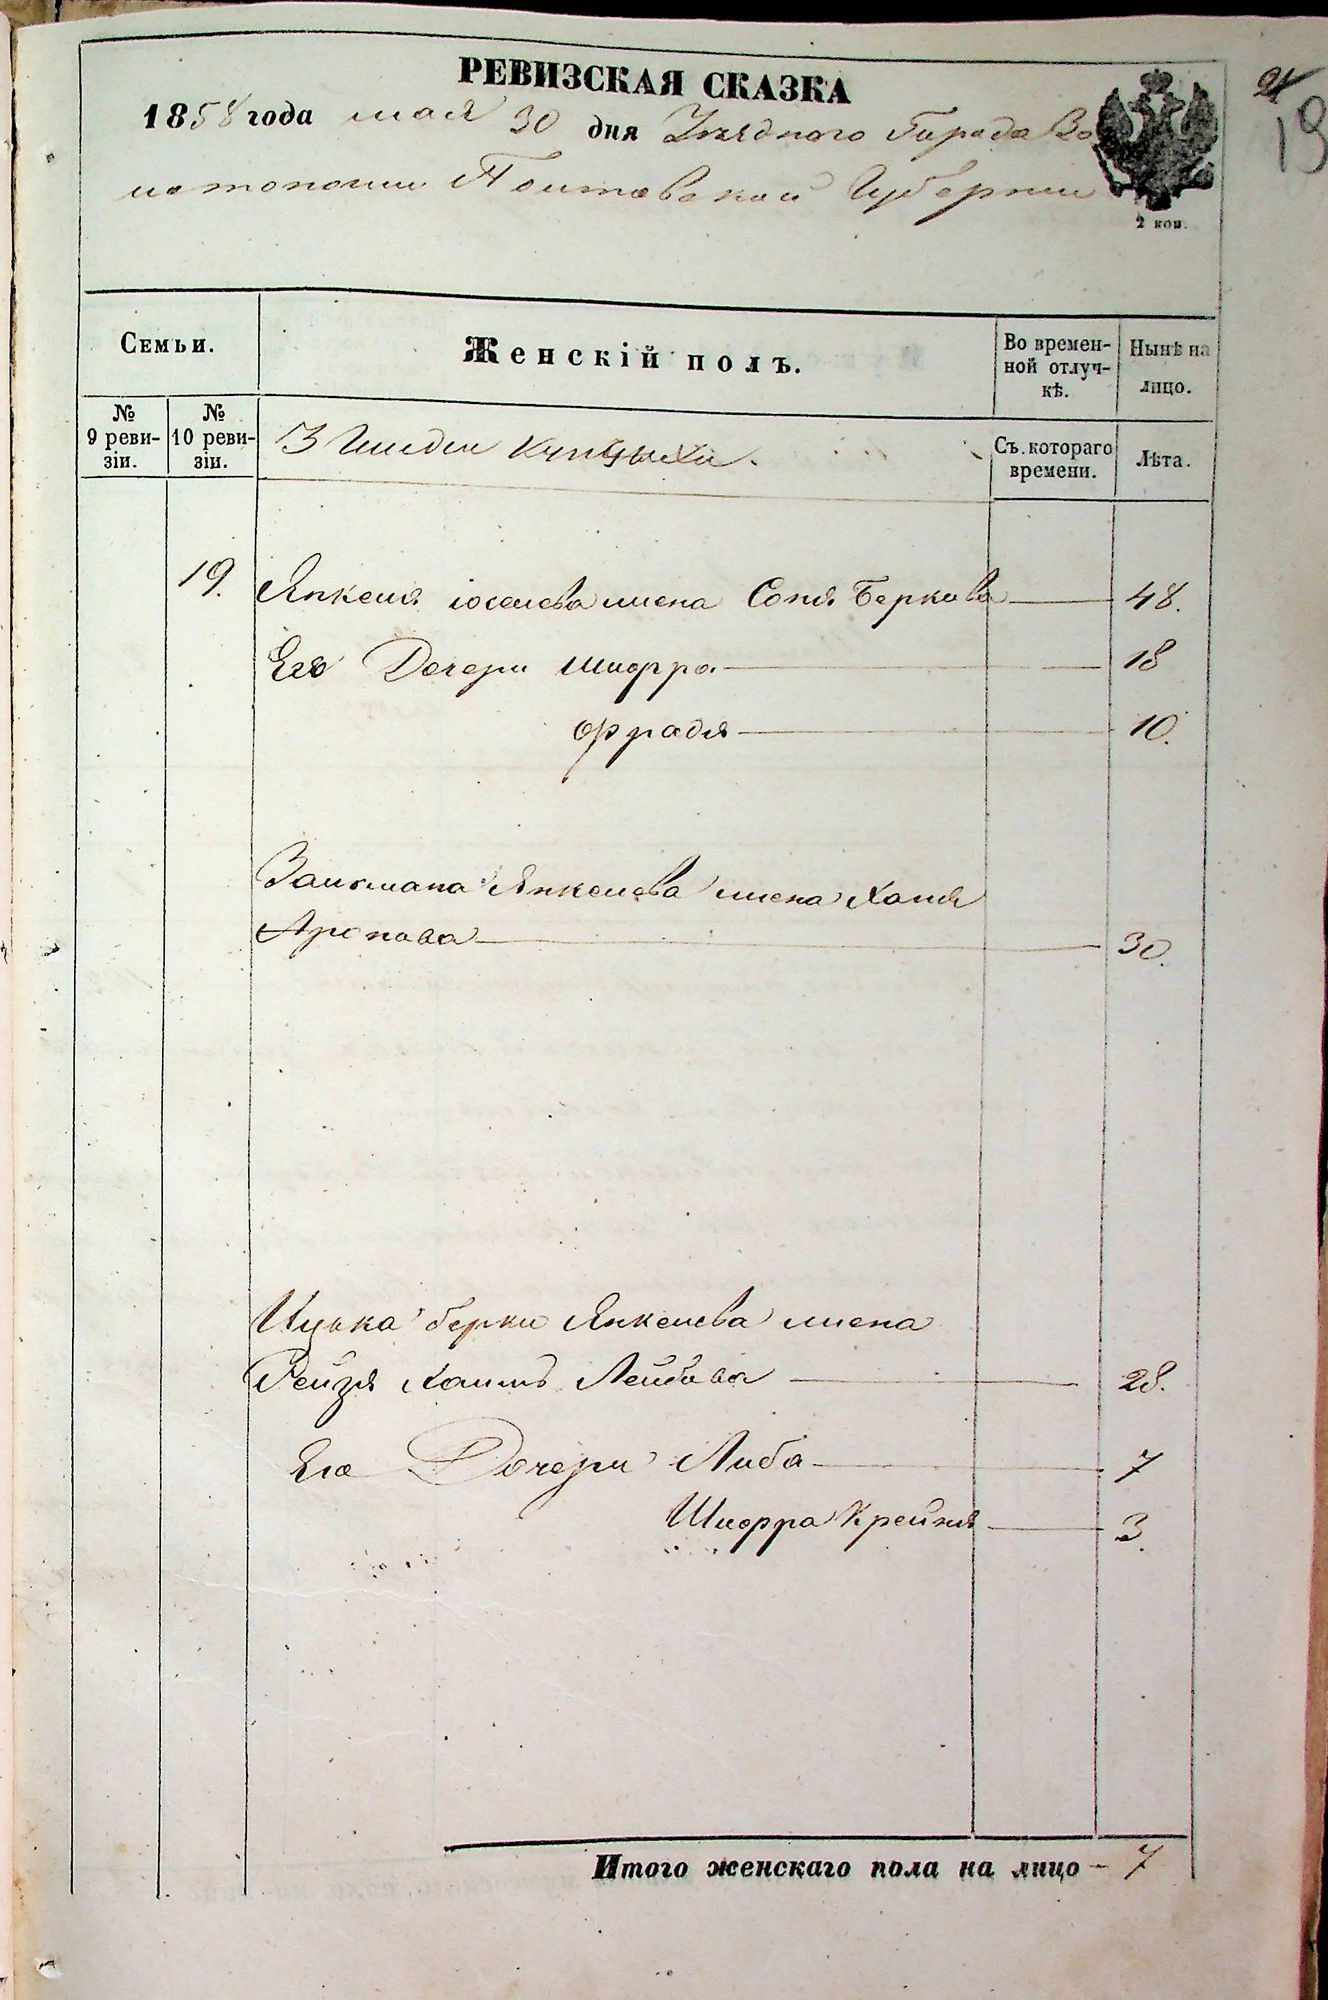 РЕВИЗСКАЯ СКАЗКА
1858 года мая 30 дня Уѣзднаго Города Зо
лотоноши Полтавской Губернии
2 коп.
19
Семьи.
Женскій полъ.
Во времен-
ной отлуч-
кѣ.
Нынѣ на
лицо.
№
9 реви-
зіи.
№
10 реви-
зіи.
3 Гилдии Купцыхи.
Съ котораго
времени.
Лѣта.
19. Янкеля Іоселева жена Соня Беркова 48.
Его Дочери Шифра 18
Фрадя 10.
Залкмана Янкелева жена Ханя
Аронова 30.
Ицька Берки Янкелева жена
Рейзя Хаимъ Лейбова 28.
Его Дочери Либа 7
Шифра Крейня 3.
Итого женскаго пола на лицо - 7